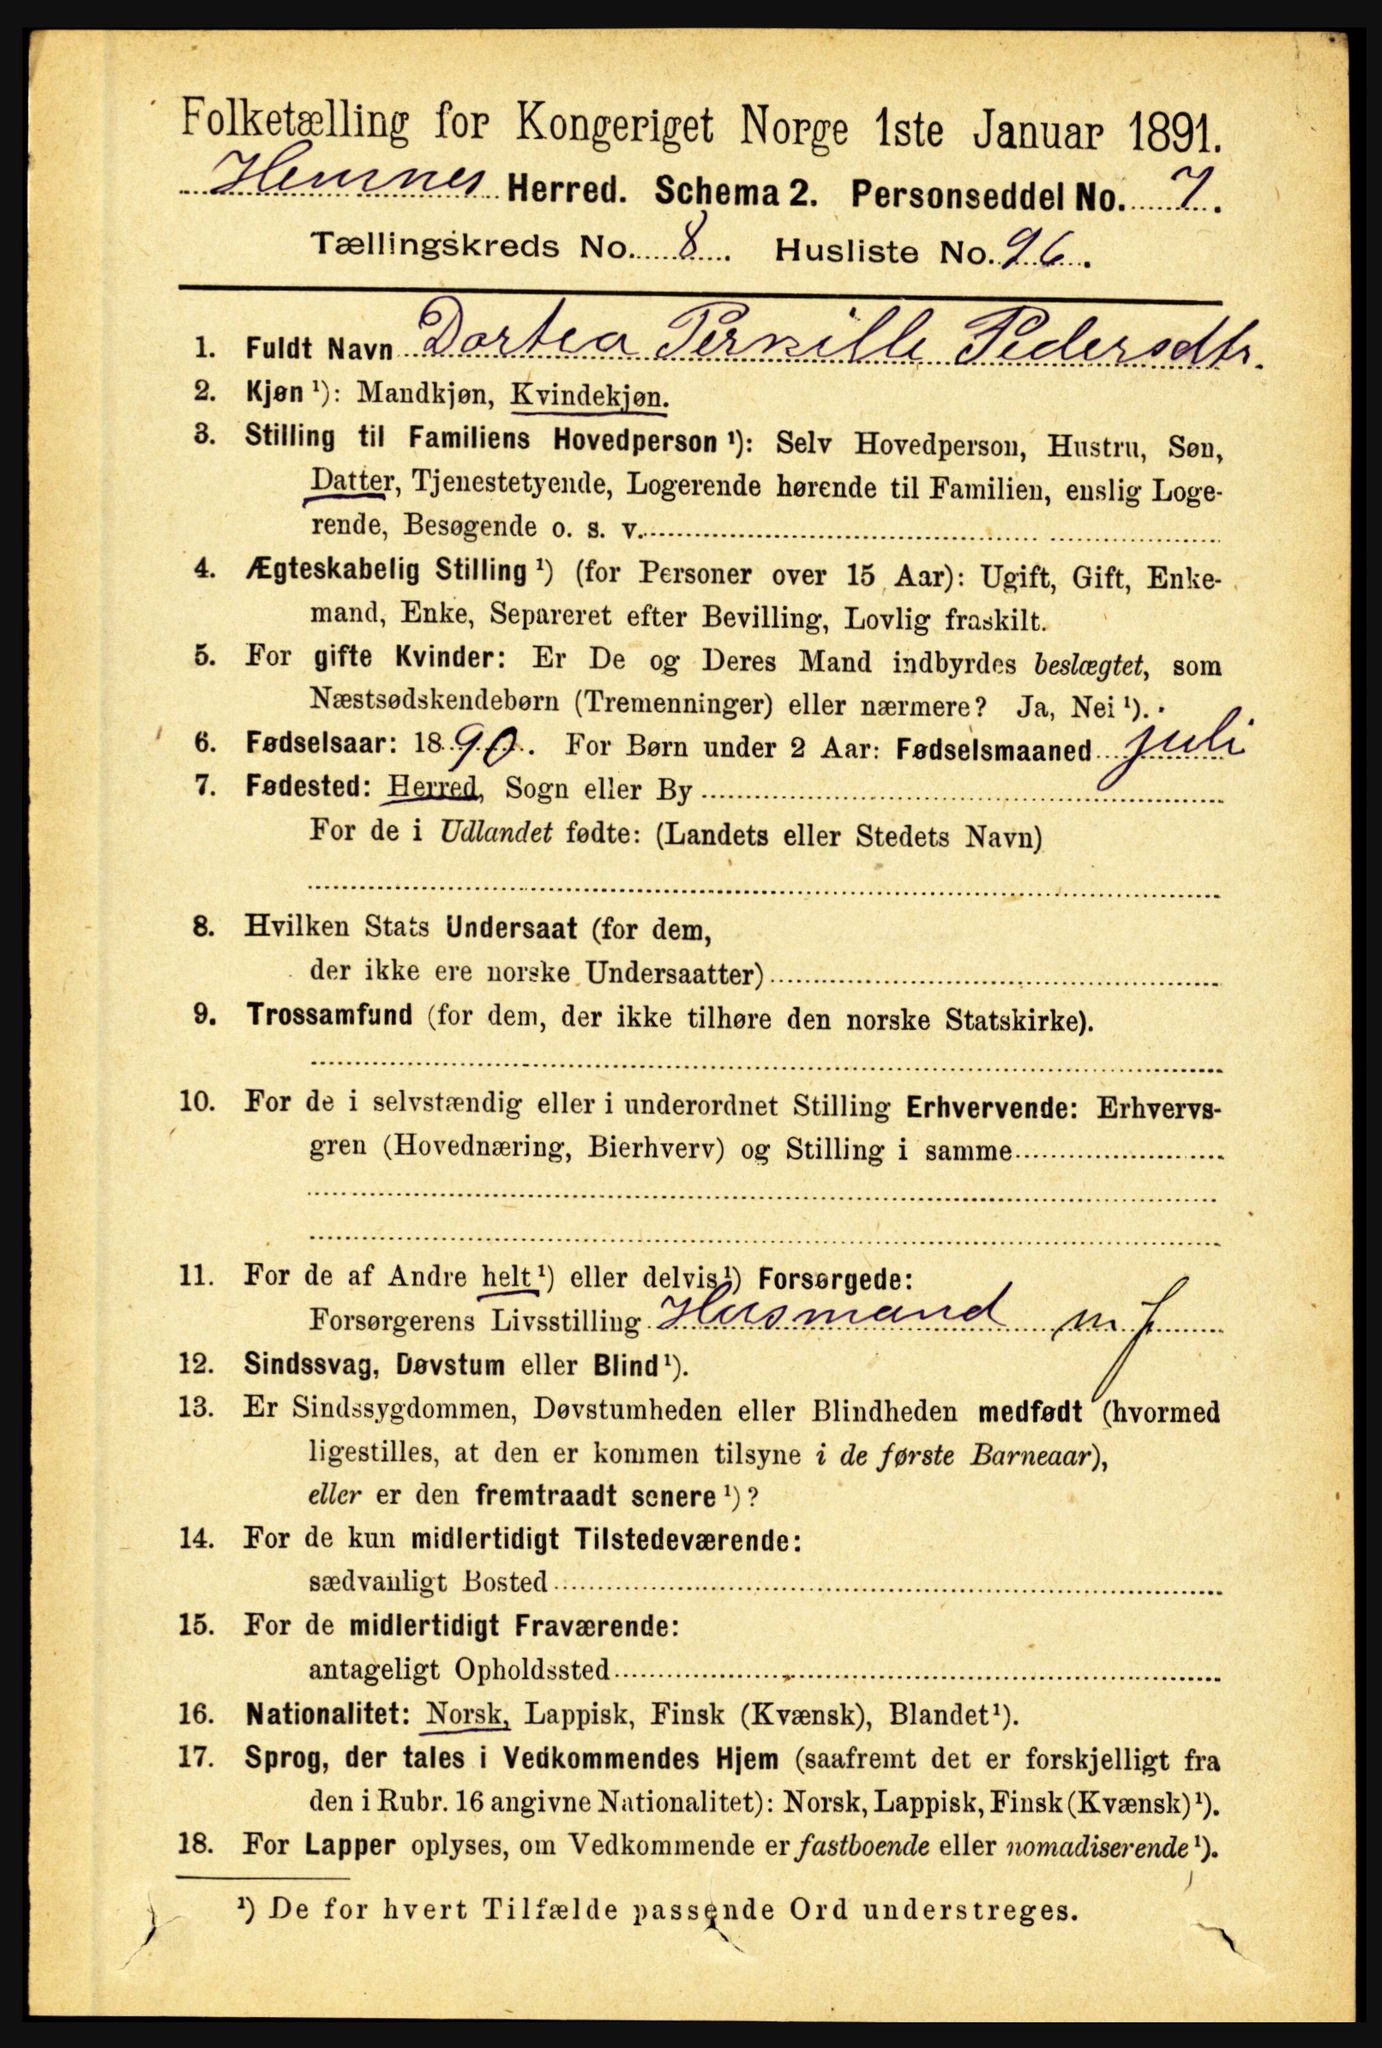 Folketælling for Kongeriget Norge 1ste Januar 1891.
Hemnes Herred. Schema 2. Personseddel No. 7.
Tællingskreds No. 8. Husliste No. 26.
1. Fuldt Navn Dortea Pernille Pedersdtr.
2. Kjøn ¹): Mandkjøn, Kvindekjøn.
3. Stilling til Familiens Hovedperson ¹): Selv Hovedperson, Hustru, Søn,
Datter, Tjenestetyende, Logerende hørende til Familien, enslig Loge-
rende, Besøgende o. s. v.
4. Ægteskabelig Stilling ¹) (for Personer over 15 Aar): Ugift, Gift, Enke-
mand, Enke, Separeret efter Bevilling, Lovlig fraskilt.
5. For gifte Kvinder: Er De og Deres Mand indbyrdes beslægtet, som
Næstsødskendebørn (Tremenninger) eller nærmere? Ja, Nei ¹).
6. Fødselsaar: 1890. For Børn under 2 Aar: Fødselsmaaned juli
7. Fødested: Herred, Sogn eller By
For de i Udlandet fødte: (Landets eller Stedets Navn)
8. Hvilken Stats Undersaat (for dem,
der ikke ere norske Undersaatter)
9. Trossamfund (for dem, der ikke tilhøre den norske Statskirke).
10. For de i selvstændig eller i underordnet Stilling Erhvervende: Erhvervs-
gren (Hovednæring, Bierhverv) og Stilling i samme
11. For de af Andre helt ¹) eller delvis ¹) Forsørgede:
Forsørgerens Livsstilling Husmand m j
12. Sindssvag, Døvstum eller Blind ¹).
13. Er Sindssygdommen, Døvstumheden eller Blindheden medfødt (hvormed
ligestilles, at den er kommen tilsyne i de første Barneaar),
eller er den fremtraadt senere ¹)?
14. For de kun midlertidigt Tilstedeværende:
sædvanligt Bosted
15. For de midlertidigt Fraværende:
antageligt Opholdssted
16. Nationalitet: Norsk, Lappisk, Finsk (Kvænsk), Blandet ¹).
17. Sprog, der tales i Vedkommendes Hjem (saafremt det er forskjelligt fra
den i Rubr. 16 angivne Nationalitet): Norsk, Lappisk, Finsk (Kvænsk) ¹).
18. For Lapper oplyses, om Vedkommende er fastboende eller nomadiserende ¹).
¹) De for hvert Tilfælde passende Ord understreges.